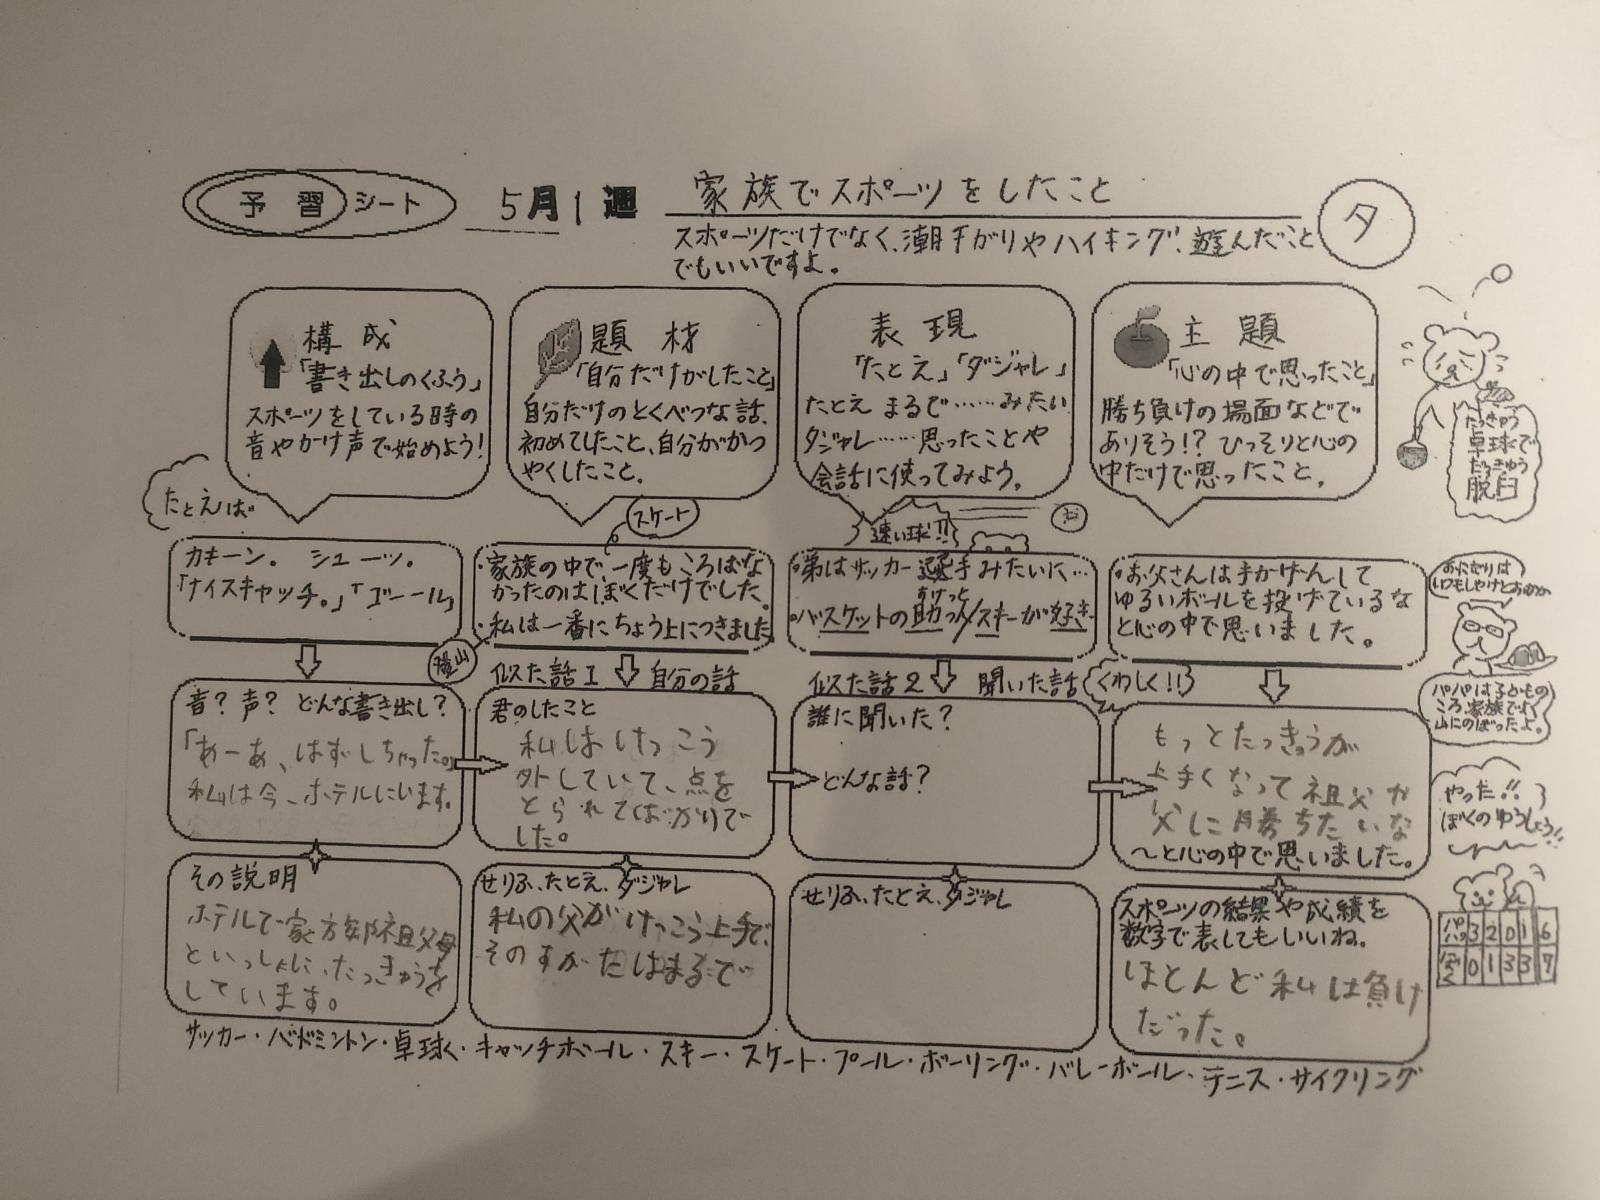 予習シート 5月1週 家族でスポーツをしたこと
夕
スポーツだけでなく、潮干がりやハイキング、遊んだこと
でもいいですよ。
構成
「書き出しのくふう」
スポーツをしている時の
音やかけ声で始めよう!
題材
「自分だけがしたこと」
自分だけのとくべつな話、
初めてしたこと、自分がかつ
やくしたこと。
表現
「たとえ」「ダジャレ」
たとえ まるで……みたい
ダジャレ……思ったことや
会話に使ってみよう。
主題
「心の中で思ったこと」
勝ち負けの場面などで
ありそう!? ひっそりと心の
中だけで思ったこと。
たっきゅう
卓球で
だっきゅう
脱臼
たとえば
カキーン。 シューッ。
「ナイスキャッチ。」「ゴール」
スケート
・家族の中で一度もころばな
かったのはぼくだけでした。
・私は一番にちょう上につきました
速い球!!
・弟はサッカー選手みたいに…
すけっと
・バスケットの助っ人/スキーが好き
・お父さんは手かげんして
ゆるいボールを投げているな
と心の中で思いました。
おにぎりは
いつもしゃけとおかか
パパは子どもの
ころ、家族でよく
山にのぼったよ。
音?声? どんな書き出し?
「あーあ、はずしちゃった。」
私は今、ホテルにいます。
似た話1 自分の話
君のしたこと
私はけっこう
外していて、点を
とられてばかりで
した。
似た話2 聞いた話
誰に聞いた?
どんな話?
くわしく!!
もっとたっきゅうが
上手くなって祖父か
父に勝ちたいな
〜と心の中で思いました。
やった!!
ぼくのゆうしょう!!
その説明
ホテルで家族や祖父母
といっしょに、たっきゅうを
しています。
せりふ、たとえ、ダジャレ
私の父がけっこう上手で、
そのすがたはまるで
せりふ、たとえ、ダジャレ
スポーツの結果や成績を
数字で表してもいいね。
ほとんど私は負け
だった。
パパ 3 2 0 1 6
ぼく 0 1 3 3 7
サッカー・バドミントン・卓球・キャッチボール・スキー・スケート・プール・ボーリング・バレーボール・テニス・サイクリング